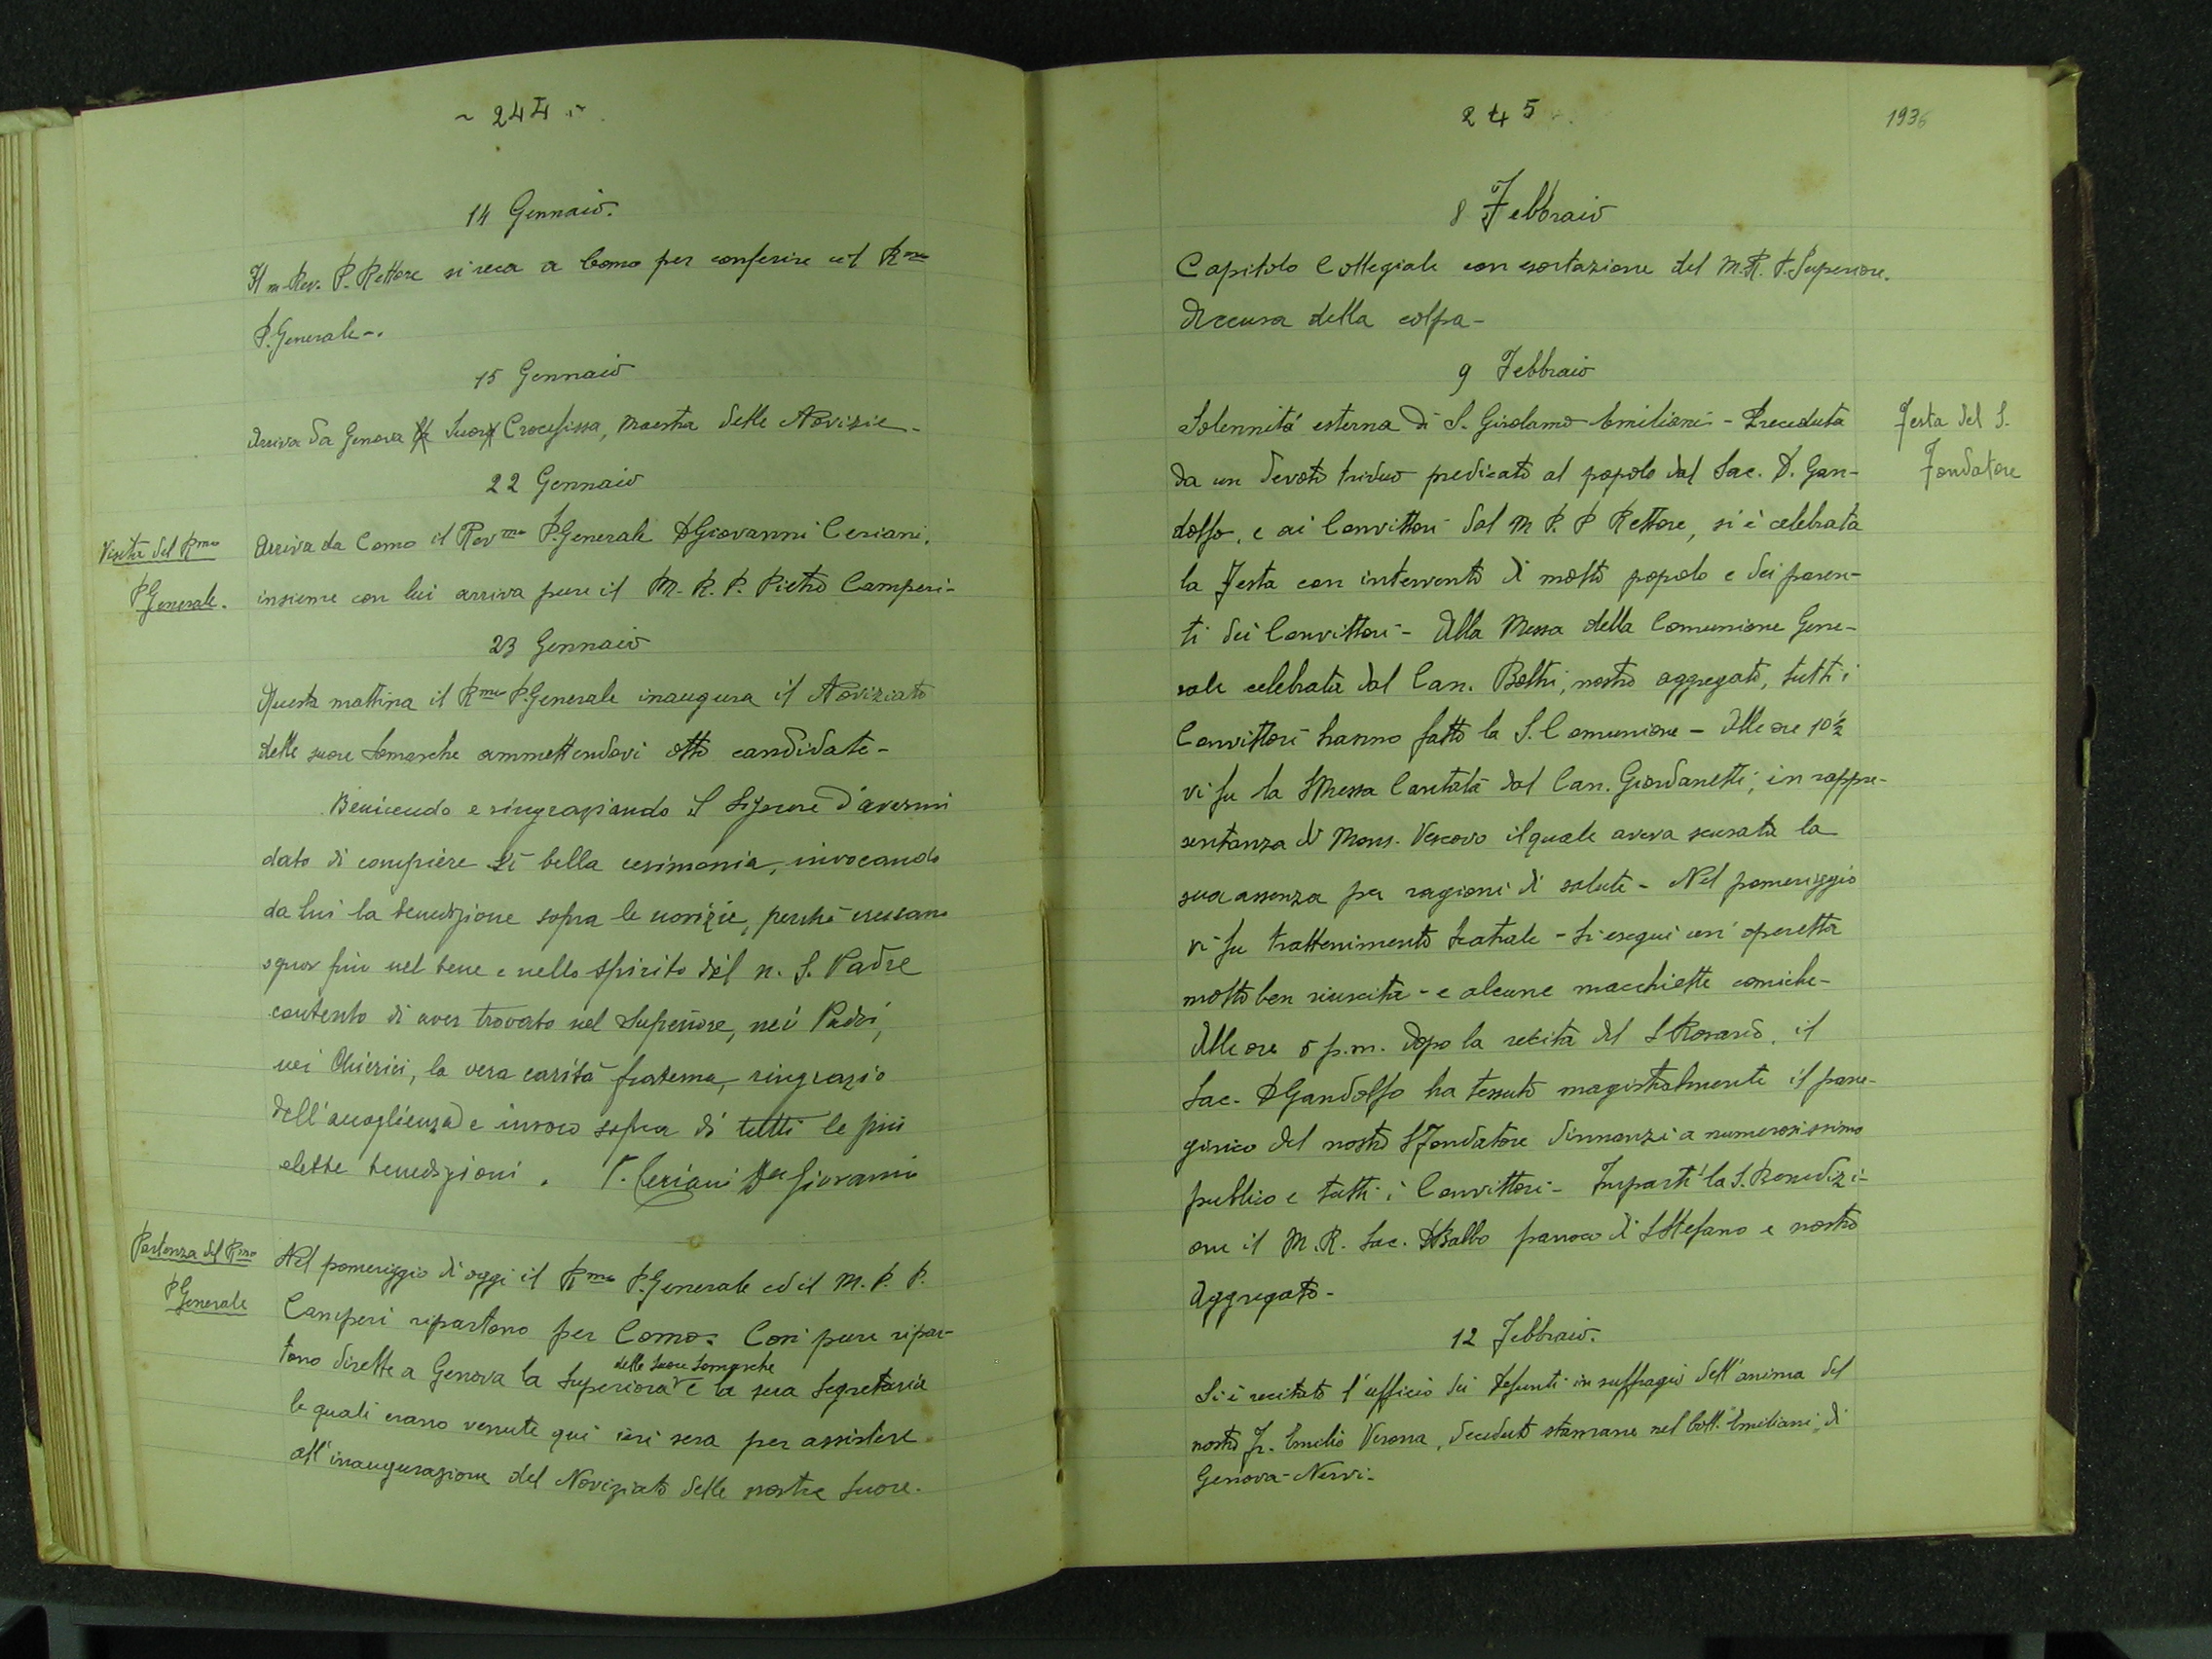 ~ 244 ~
14 Gennaio.
Il m. Rev. P. Rettore si reca a Como per conferire col Rmo
P. Generale -.
15 Gennaio
Arriva da Genova Suor Crocifissa, Maestra delle Novizie -
22 Gennaio
Visita del Rmo
P Generale.
Arriva da Como il Revmo P. Generale D Giovanni Ceriani,
insieme con lui arriva pure il M. R. P. Pietro Camperi -
23 Gennaio
Questa mattina il Rmo P. Generale inaugura il Noviziato
delle suore Somasche ammettendovi otto candidate -
Benicendo e ringraziando il Signore d'avermi
dato di compiere sì bella cerimonia, invocando
da lui la benedizione sopra le novizie, perché crescano
ognor più nel bene e nello spirito del n. S. Padre
contento di aver trovato nel Superiore, nei Padri,
nei Chierici, la vera carità fraterna, ringrazio
dell'accoglienza e invoco sopra di tutti le più
elette benedizioni. P. Ceriani Dn Giovanni
Partenza del Rmo
P Generale
Nel pomeriggio di oggi il Rmo P. Generale ed il M. R. P.
Camperi ripartono per Como: Così pure ripar-
delle Suore Somasche
tono dirette a Genova la Superiora e la sua Segretaria
le quali erano venute qui ieri sera per assistere
all'inaugurazione del Noviziato delle nostre Suore.
245
1936
8 Febbraio
Capitolo Collegiale con esortazione del M. R. P. Superiore.
Accusa della colpa -
9 Febbraio
Festa del S.
Fondatore
Solennità esterna di S. Girolamo Emiliani - Preceduta
da un devoto triduo predicato al popolo dal Sac. D. Gan-
dolfo, e ai Convittori dal M R. P Rettore, si è celebrata
la Festa con intervento di molto popolo e dei paren-
ti dei Convittori - Alla Messa della Comunione Gene-
rale celebrata dal Can. Boltri, nostro aggregato, tutti i
Convittori hanno fatto la S. Comunione - Alle ore 10 ½
vi fu la S Messa Cantata dal Can. Giordanetti, in rappre-
sentanza di Mons. Vescovo il quale aveva scusata la
sua assenza per ragioni di salute - Nel pomeriggio
vi fu trattenimento teatrale - Si eseguì un' operetta
molto ben riuscita - e alcune macchiette comiche -
Alle ore 5 p.m. dopo la recita del S Rosario, il
Sac. D Gandolfo ha tessuto magistralmente il pane-
girico del nostro S Fondatore dinnanzi a numerosissimo
pubblico e tutti i Convittori - Impartì la S. Benedizi-
one il M. R. Sac. D Balbo parroco di S Stefano e nostro
Aggregato -
12 Febbraio.
Si è recitato l'ufficio dei defunti in suffragio dell'anima del
nostro Fr. Emilio Verona, deceduto stamane nel Coll. "Emiliani" di
Genova - Nervi -